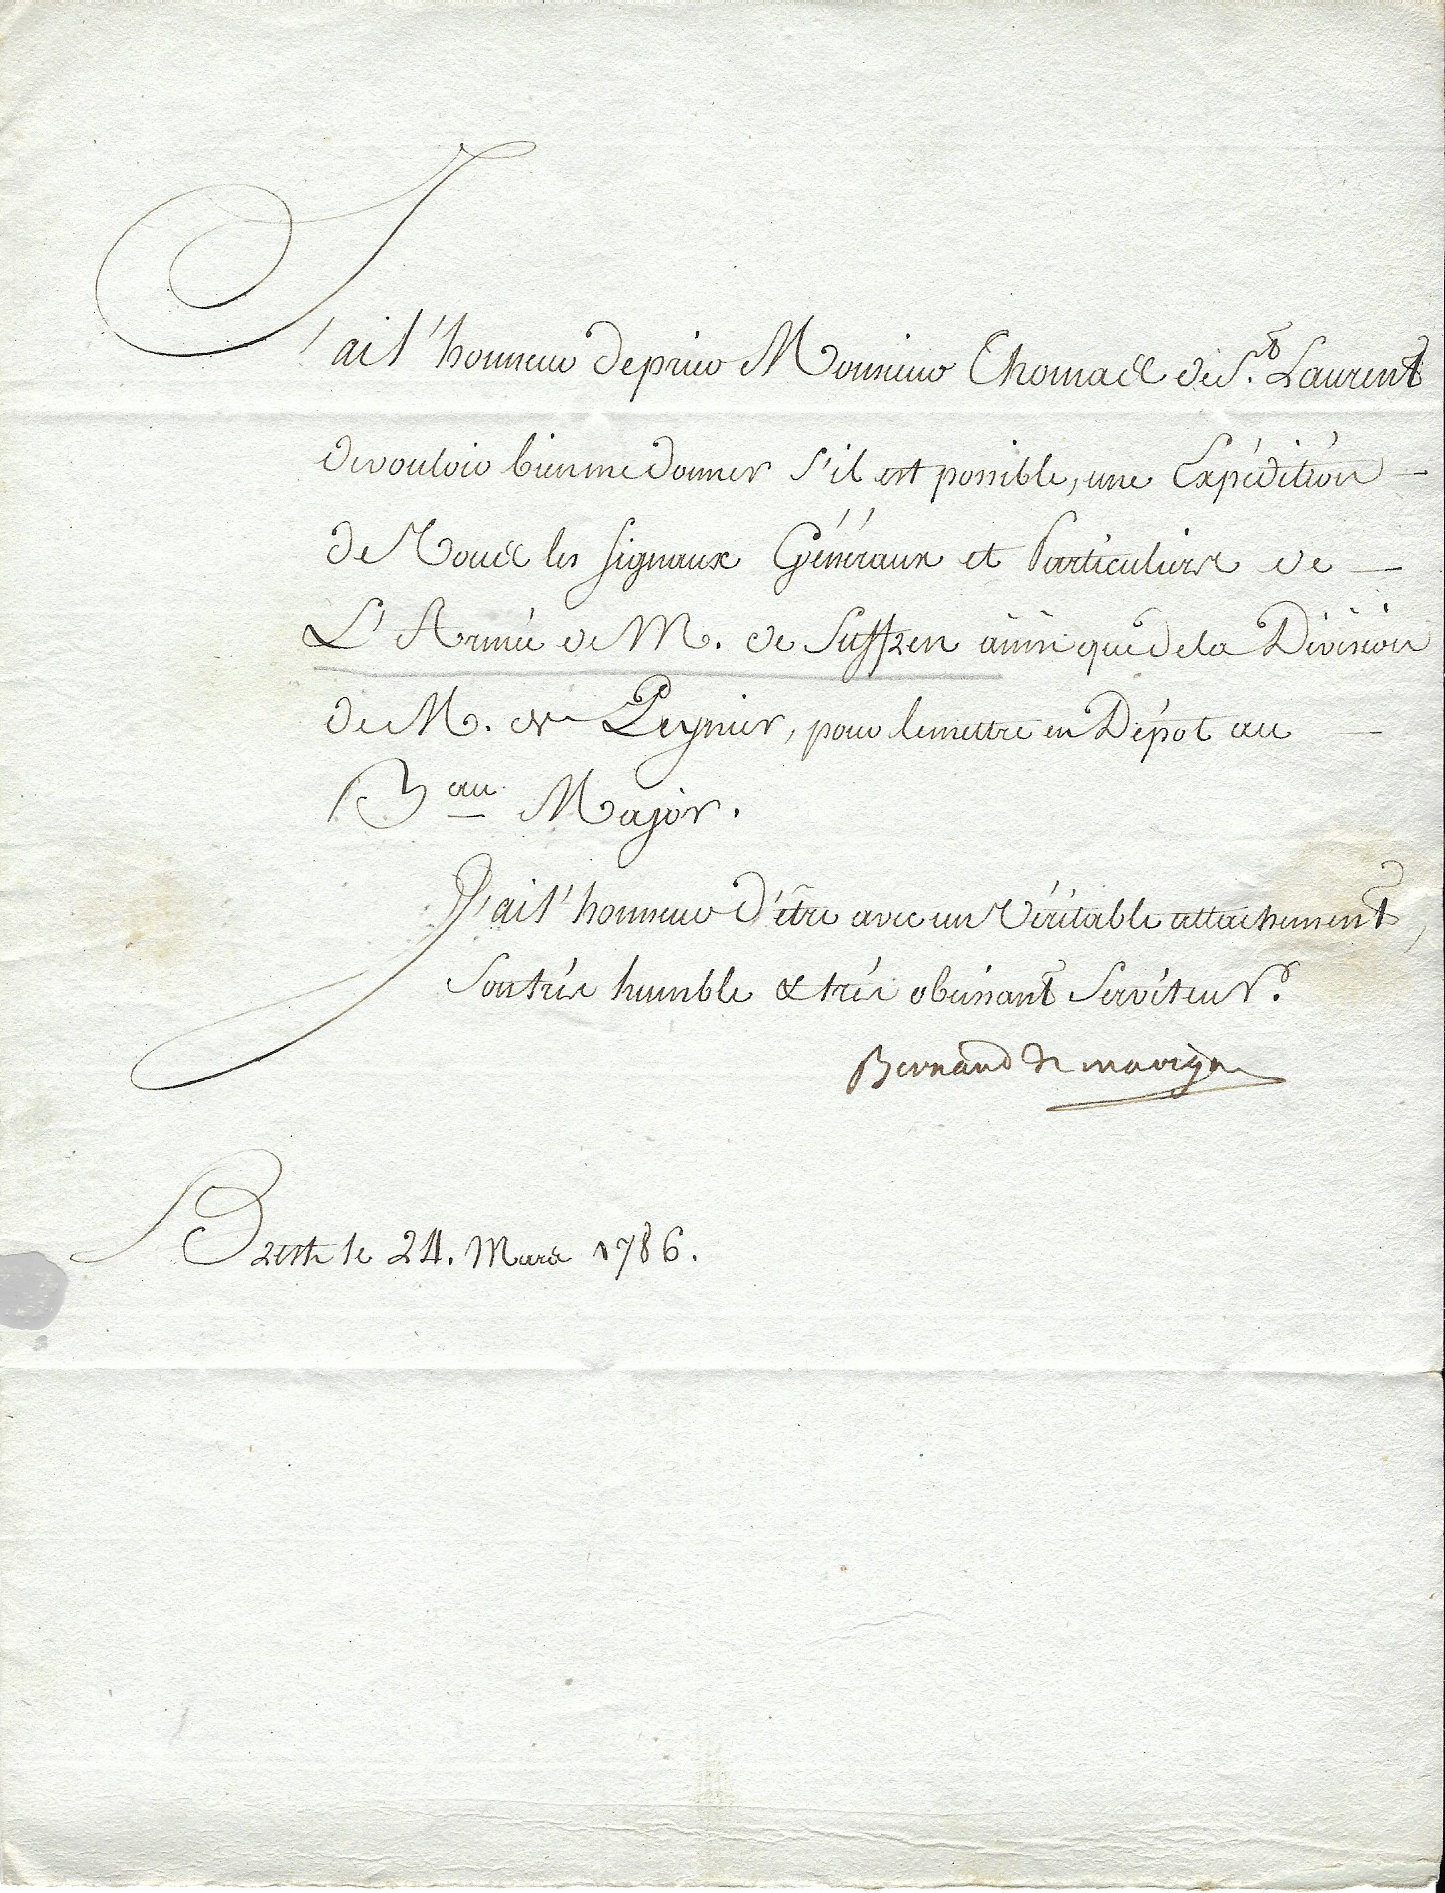 J'ai l'honneur de prier Monsieur Thomas de St. Laurent
de vouloir bien me donner s'il est possible, une Expédition
de Tous les signaux Généraux et Particuliers de
L'Armée de M. de Suffren ainsi que de la Division
de M. de Peynier, pour le mettre en Dépot au
Bau Major.
J'ai l'honneur d'être avec un Véritable attachement,
Son très humble & très obeissant Serviteur.
Bernard de marigny
Brest le 24. Mars 1786.